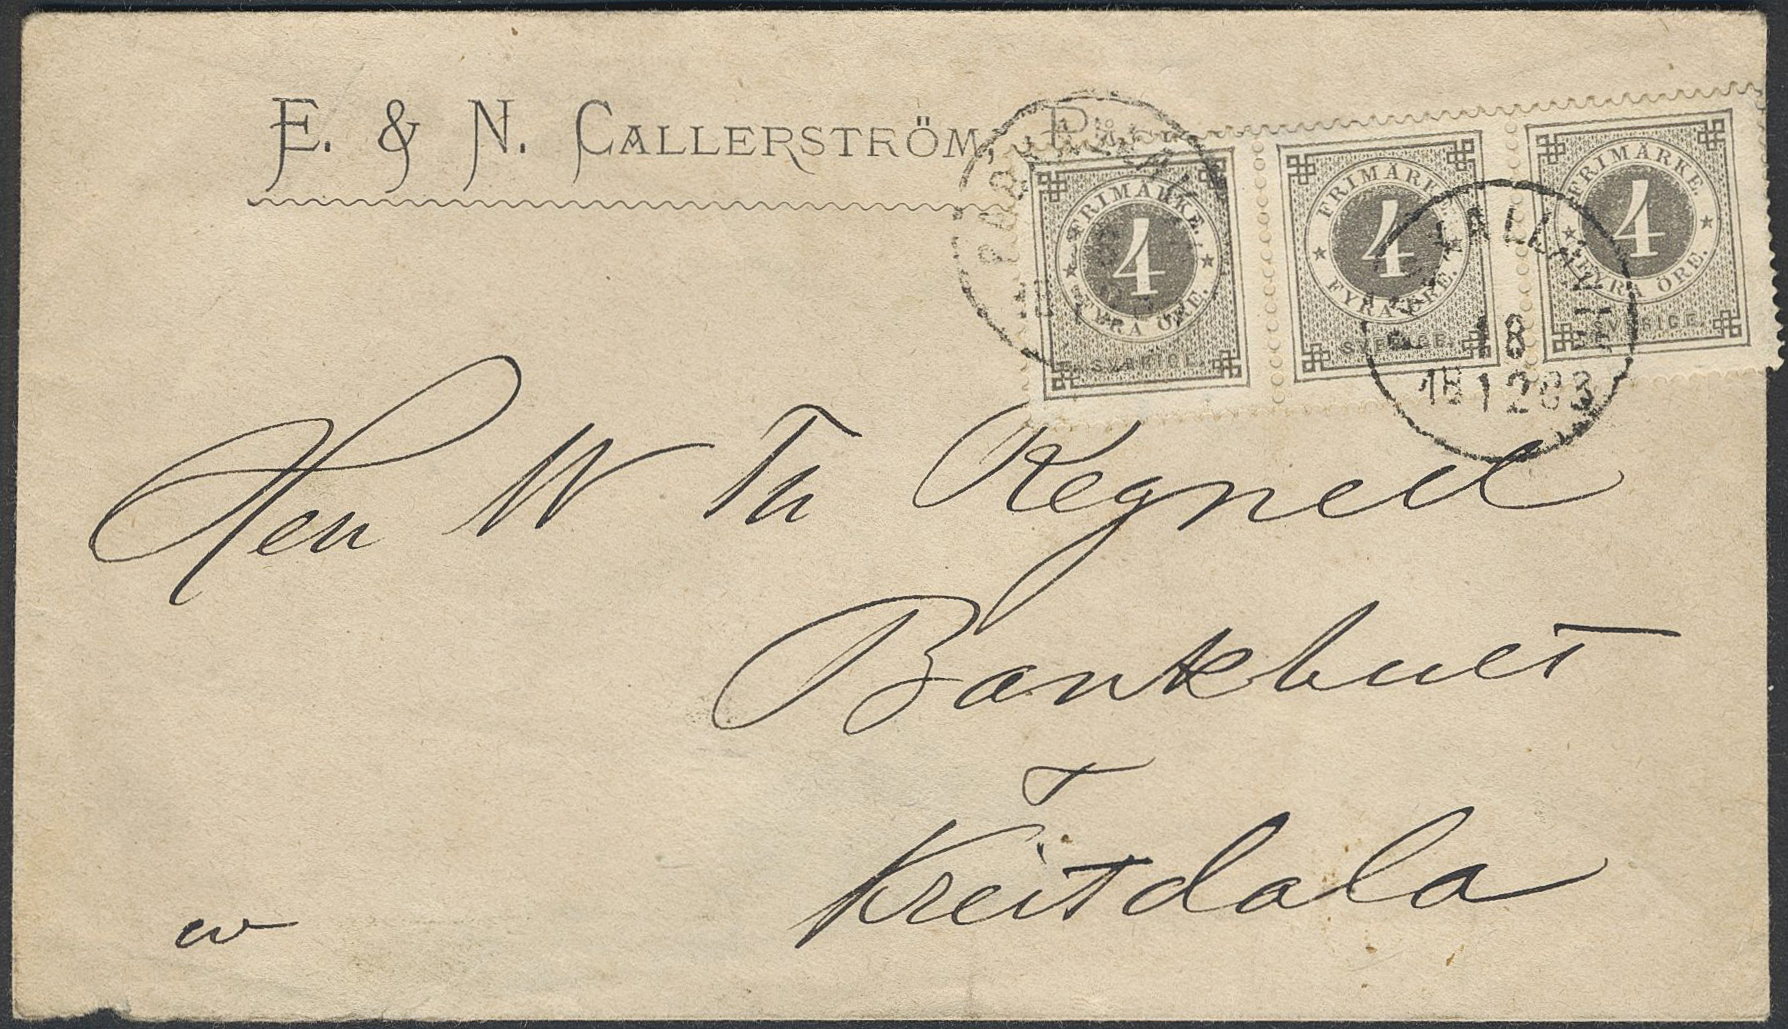 E. & N. CALLERSTRÖM,
FRIMÄRKE. 4 FYRA ÖRE. SVERIGE.
FRIMÄRKE. 4 FYRA ÖRE. SVERIGE.
FRIMÄRKE. 4 FYRA ÖRE. SVERIGE.
18
18 12 83
Herr W Th Regnell
Bankhult
Kreitdala